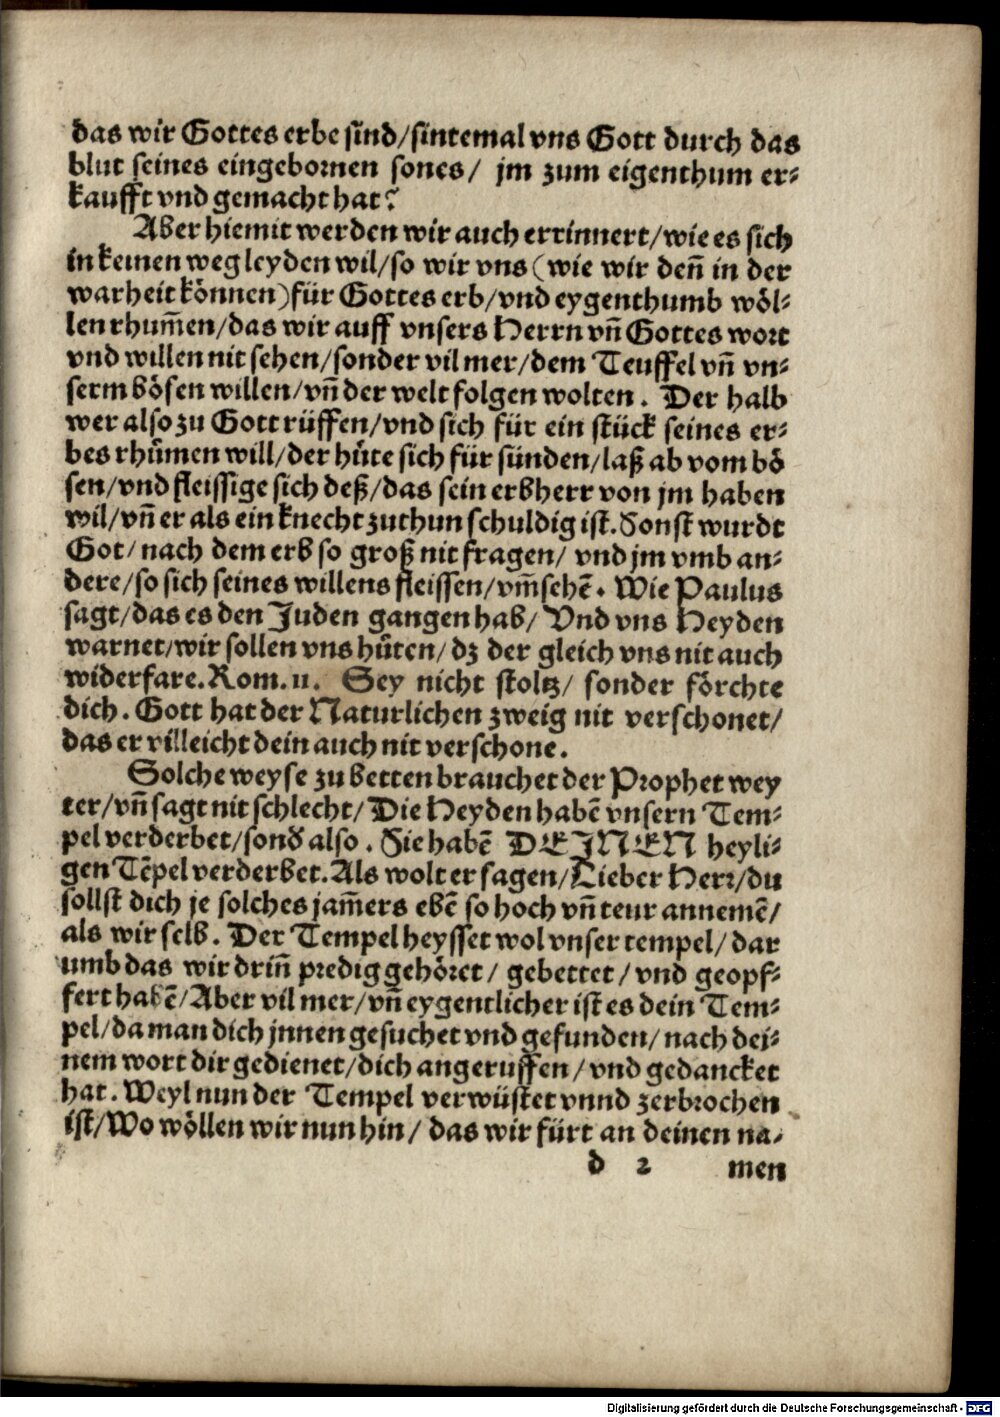 das wir Gottes erbe sind/sintemal vns Gott durch das
blut seines eingebornen sones/ jm zum eigenthum er⸗
kaufft vnd gemacht hat?
Aber hiemit werden wir auch errinnert/wie es sich
in keinen weg leyden wil/so wir vns (wie wir deñ in der
warheit können) für Gottes erb/vnd eygenthumb wöl⸗
len rhum̃en/das wir auff vnsers Herrn vñ Gottes wort
vnd willen nit sehen/sonder vil mer/dem Teuffel vñ vn⸗
serm bösen willen/vñ der welt folgen wolten. Der halb
wer also zu Gott rüffen/vnd sich für ein stück seines er⸗
bes rhůmen will/der hůte sich für sünden/laß ab vom bö
sen/vnd fleissige sich deß/das sein erbherr von jm haben
wil/vñ er als ein knecht zuthun schuldig ist. Sonst wurdt
Got/nach dem erb so groß nit fragen/ vnd jm vmb an⸗
dere/so sich seines willens fleissen/vm̃sehẽ. Wie Paulus
sagt/das es den Juden gangen hab/ Vnd vns Heyden
warnet/wir sollen vns hůten/dz der gleich vns nit auch
widerfare. Rom. 11. Sey nicht stoltz/ sonder förchte
dich. Gott hat der Naturlichen zweig nit verschonet/
das er villeicht dein auch nit verschone.
Solche weyse zu betten brauchet der Prophet wey
ter/vñ sagt nit schlecht/Die Heyden habẽ vnsern Tem⸗
pel verderbet/sonď also. Sie habẽ DEINEN heyli⸗
gen Tẽpel verderbet. Als wolt er sagen/Lieber Herr/du
sollst dich je solches jam̃ers ebẽ so hoch vñ teur annemẽ/
als wir selb. Der Tempel heysset wol vnser tempel/dar
umb das wir driñ predig gehöret/ gebettet/vnd geopf⸗
fert habẽ/Aber vil mer/vñ eygentlicher ist es dein Tem⸗
pel/da man dich jnnen gesuchet vnd gefunden/nach dei⸗
nem wort dir gedienet/dich angeruffen/vnd gedancket
hat. Weyl nun der Tempel verwüstet vnnd zerbrochen
ist/Wo wöllen wir nun hin/ das wir fürt an deinen na⸗
d 2 men
Digitalisierung gefördert durch die Deutsche Forschungsgemeinschaft - DFG